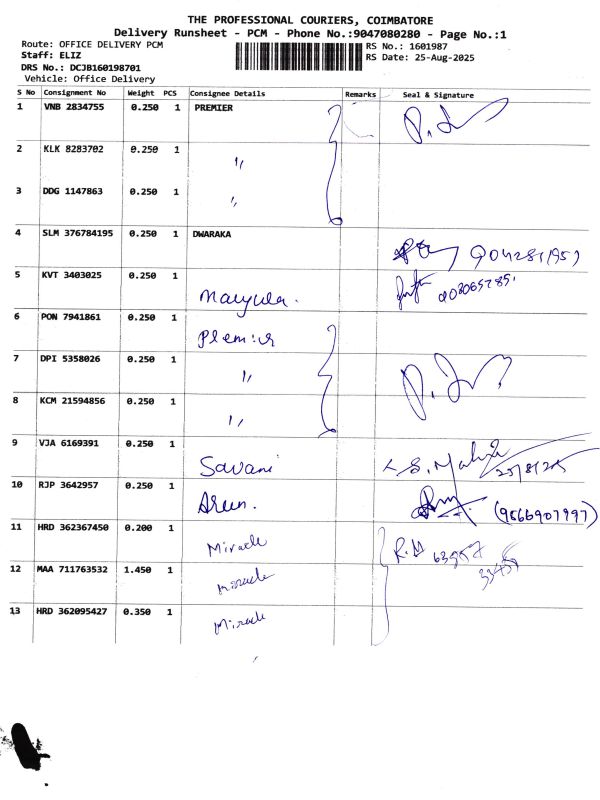 THE PROFESSIONAL COURIERS, COIMBATORE
Delivery Runsheet - PCM - Phone No.:9047080280 - Page No.:1
Route: OFFICE DELIVERY PCM
Staff: ELIZ
DRS No.: DCJB160198701
Vehicle: Office Delivery
RS No.: 1601987
RS Date: 25-Aug-2025
S No Consignment No Weight PCS Consignee Details Remarks Seal & Signature
1 VNB 2834755 0.250 1 PREMIER
2 KLK 8283702 0.250 1 "
3 DDG 1147863 0.250 1 "
4 SLM 376784195 0.250 1 DWARAKA
5 KVT 3403025 0.250 1
6 PON 7941861 0.250 1 Premier
7 DPI 5358026 0.250 1 "
8 KCM 21594856 0.250 1 "
9 VJA 6169391 0.250 1 Savani 25/8/25
10 RJP 3642957 0.250 1 Arun. (9566907997)
11 HRD 362367450 0.200 1 Miracle
12 MAA 711763532 1.450 1 Miracle
13 HRD 362095427 0.350 1 Miracle